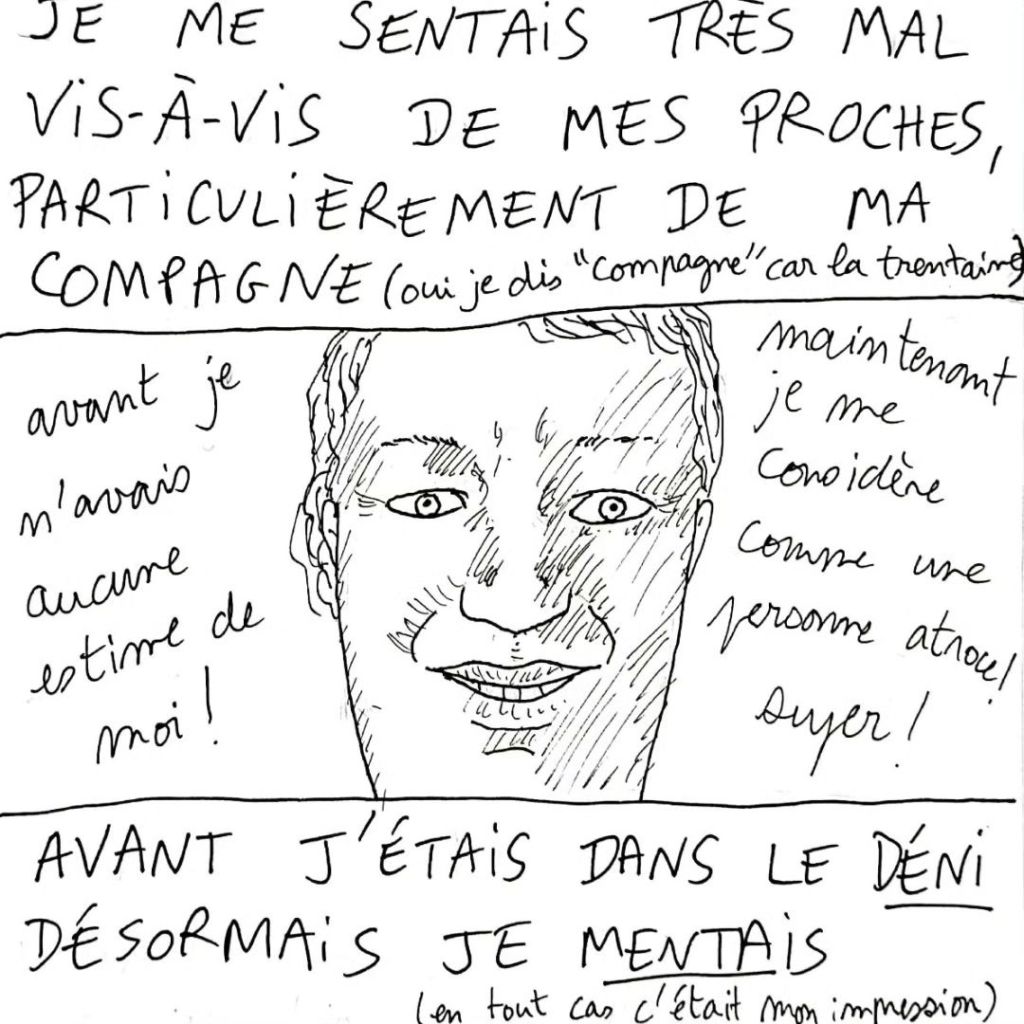 JE ME SENTAIS TRÈS MAL
VIS-À-VIS DE MES PROCHES,
PARTICULIÈREMENT DE MA
COMPAGNE (oui je dis "compagne" car la trentaine)
avant je
n'avais
aucune
estime de
moi !
maintenant
je me
considère
comme une
personne atroce !
super !
AVANT J'ÉTAIS DANS LE DÉNI
DÉSORMAIS JE MENTAIS
(en tout cas c'était mon impression)